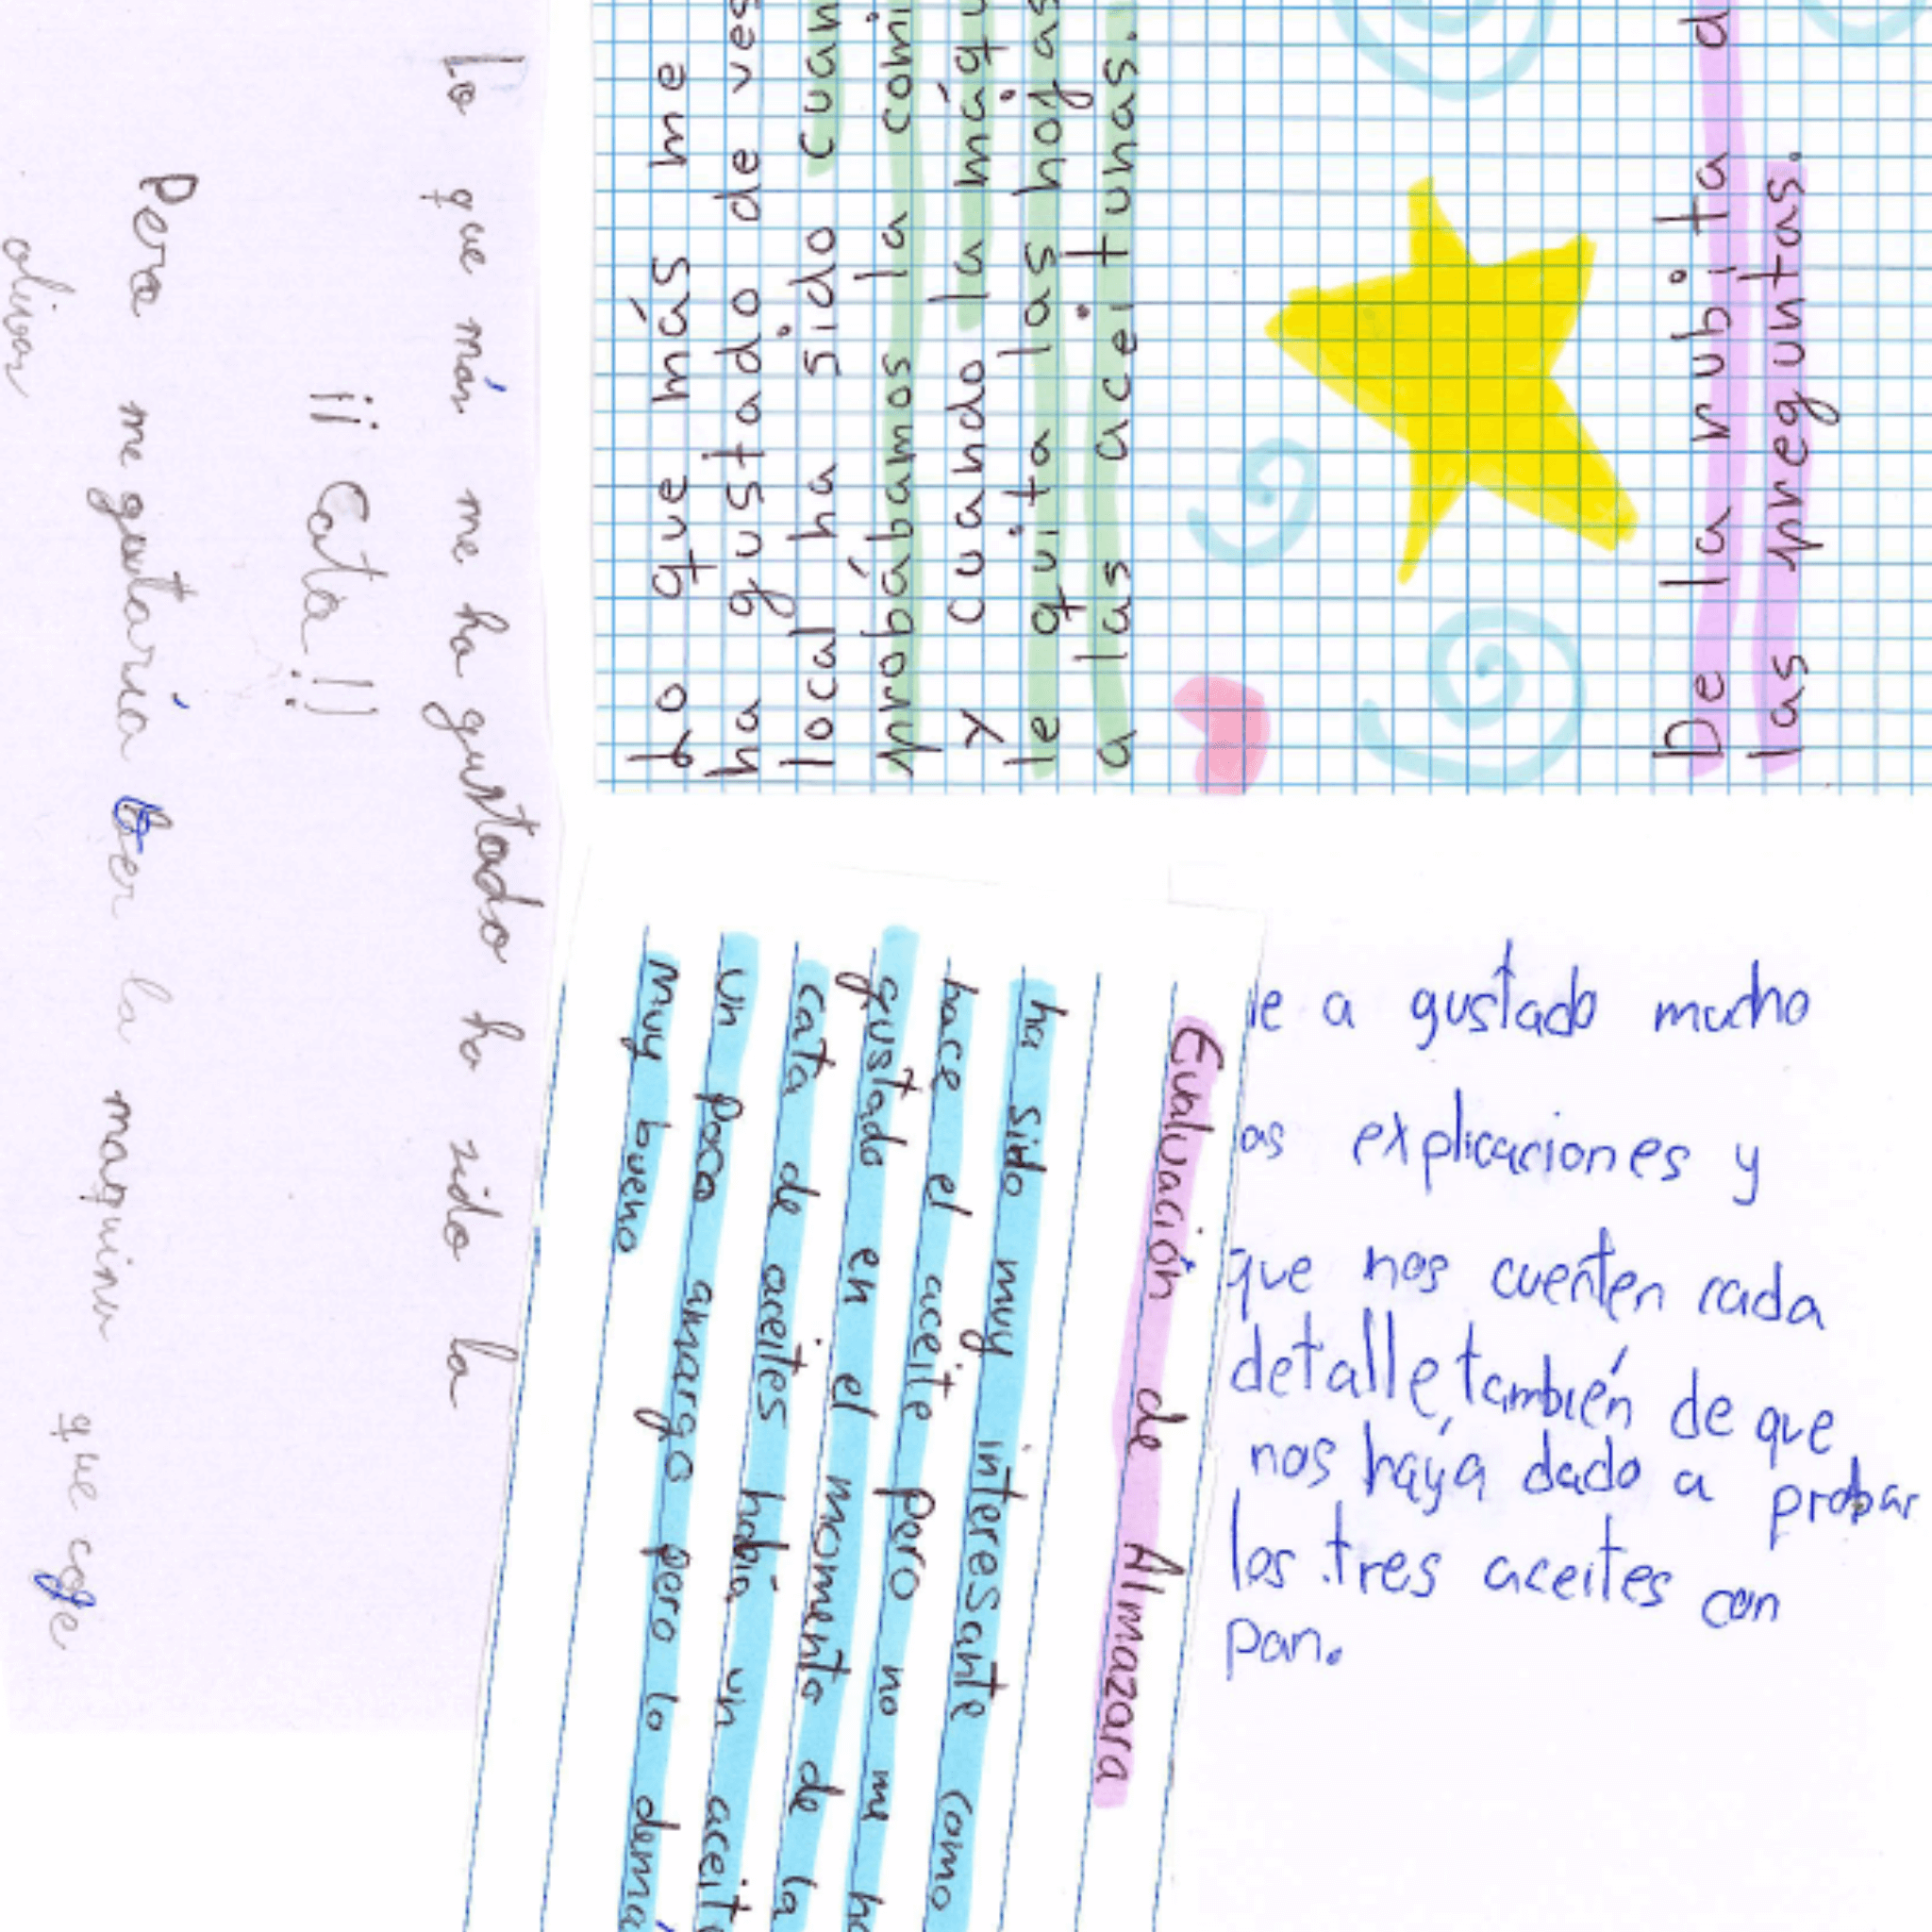 Lo que más me ha gustado ha sido la
¡¡Cata!!
Pero me gustaría ver la maquina que coge
olivas
Lo que más me
ha gustado de
local ha sido
probábamos la
y cuando la
le quita las hojas
a las aceitunas.
De la rubita
las preguntas.
Evaluación de Almazara
ha sido muy interesante como
hace el aceite pero no me
gustado en el momento de la
cata de aceites había un
un poco amargo pero lo
muy bueno
a gustado mucho
explicaciones y
que nos cuenten cada
detalle, también de que
nos haya dado a probar
los tres aceites con
pan.